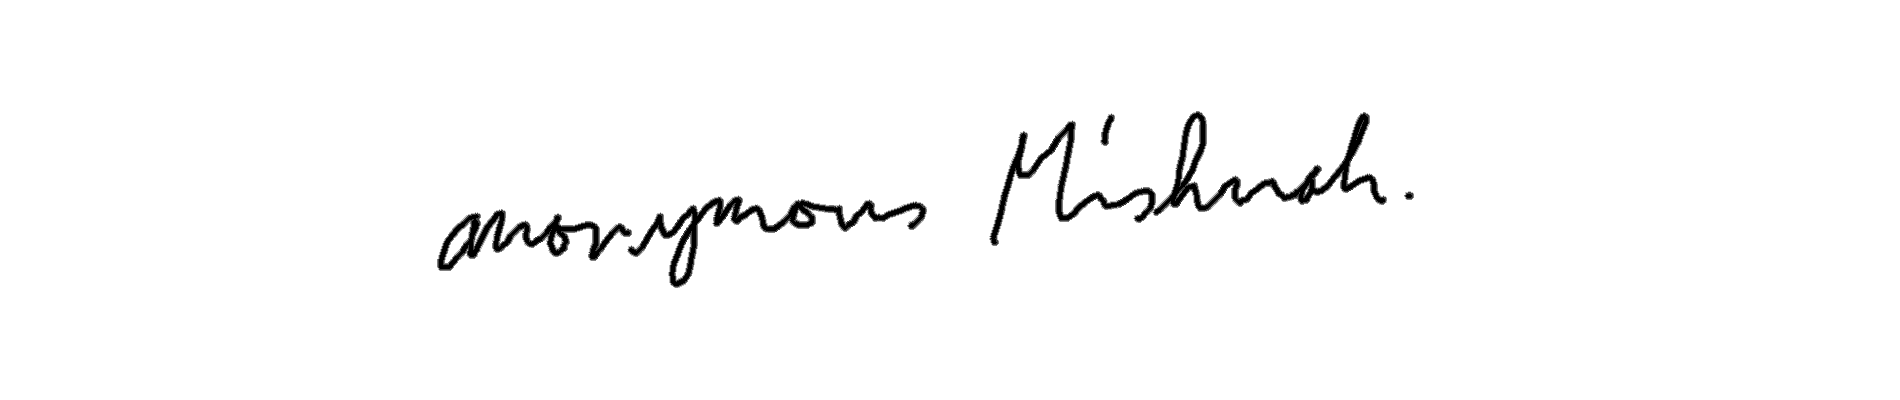 anonymous Mishnah.